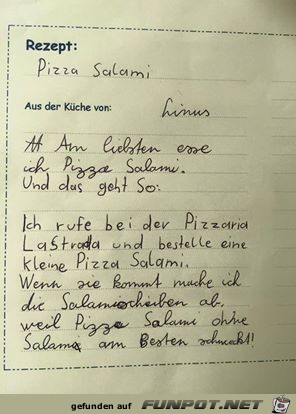 Rezept:
Pizza Salami
Aus der Küche von: Linus
Am liebsten esse
ich Pizza Salami.
Und das geht So:
Ich rufe bei der Pizzaria
LaStrada und bestelle eine
kleine Pizza Salami.
Wenn sie kommt mache ich
die Salamischeiben ab,
weil Pizza Salami ohne
Salami am Besten schmeckt!
gefunden auf FUNPOT.NET